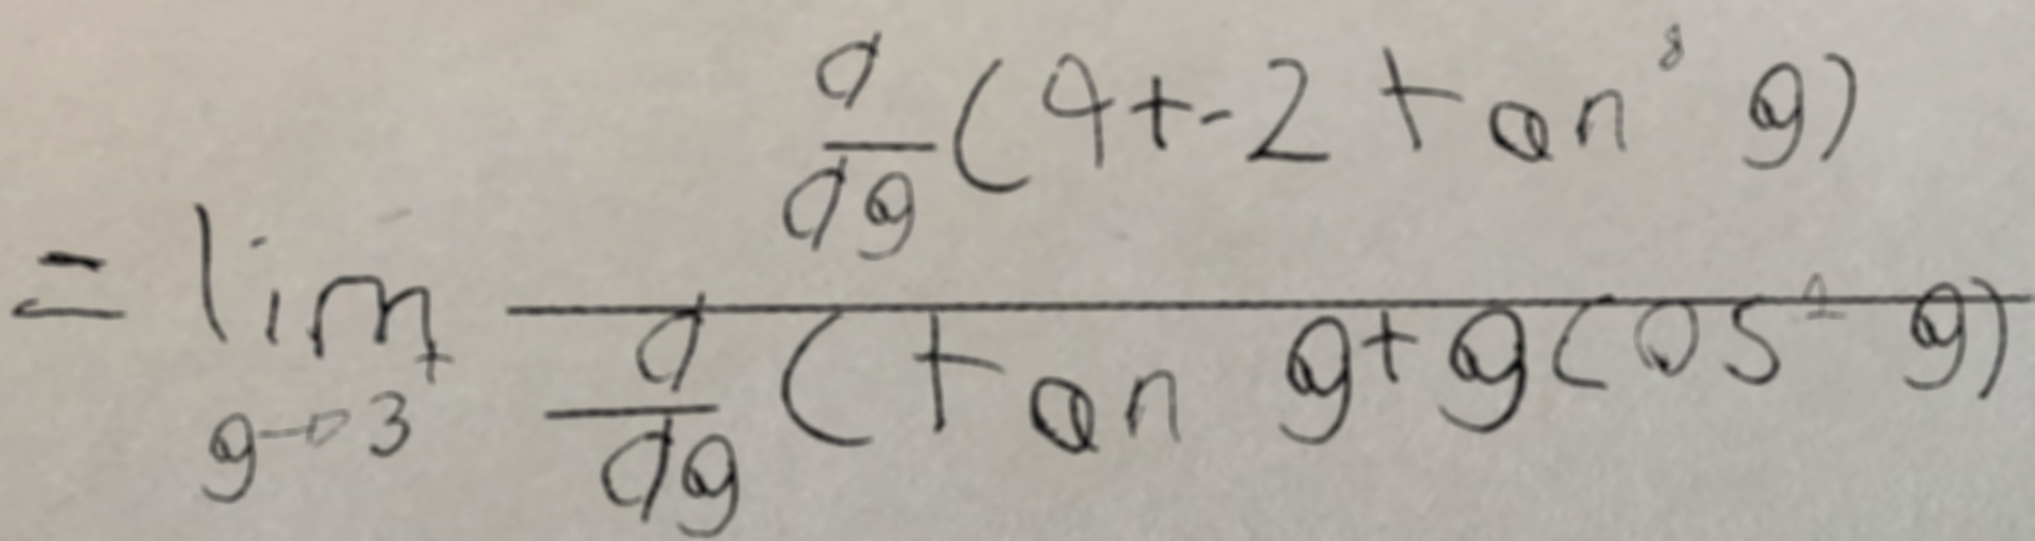 = \lim_{g \to 3^+} \frac{\frac{d}{dg}(4 + -2 \tan^8 g)}{\frac{d}{dg}(\tan g + g \cos^2 g)}